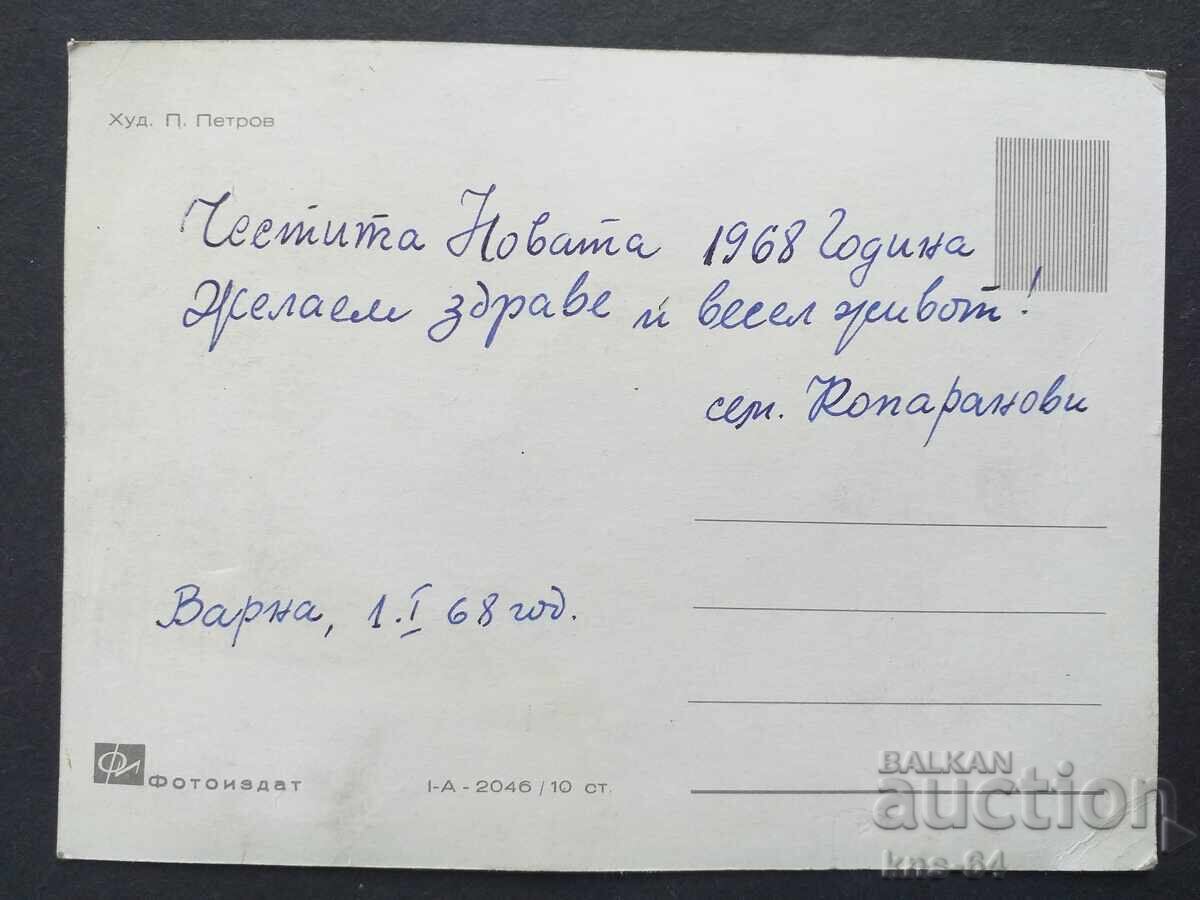 Худ. П. Петров
Честита Новата 1968 Година
Желаем здраве и весел живот!
сем. Копаранови
Варна, 1.I 68 год.
Фотоиздат
I-A-2046/10 ст.
BALKAN
auction
kns-64